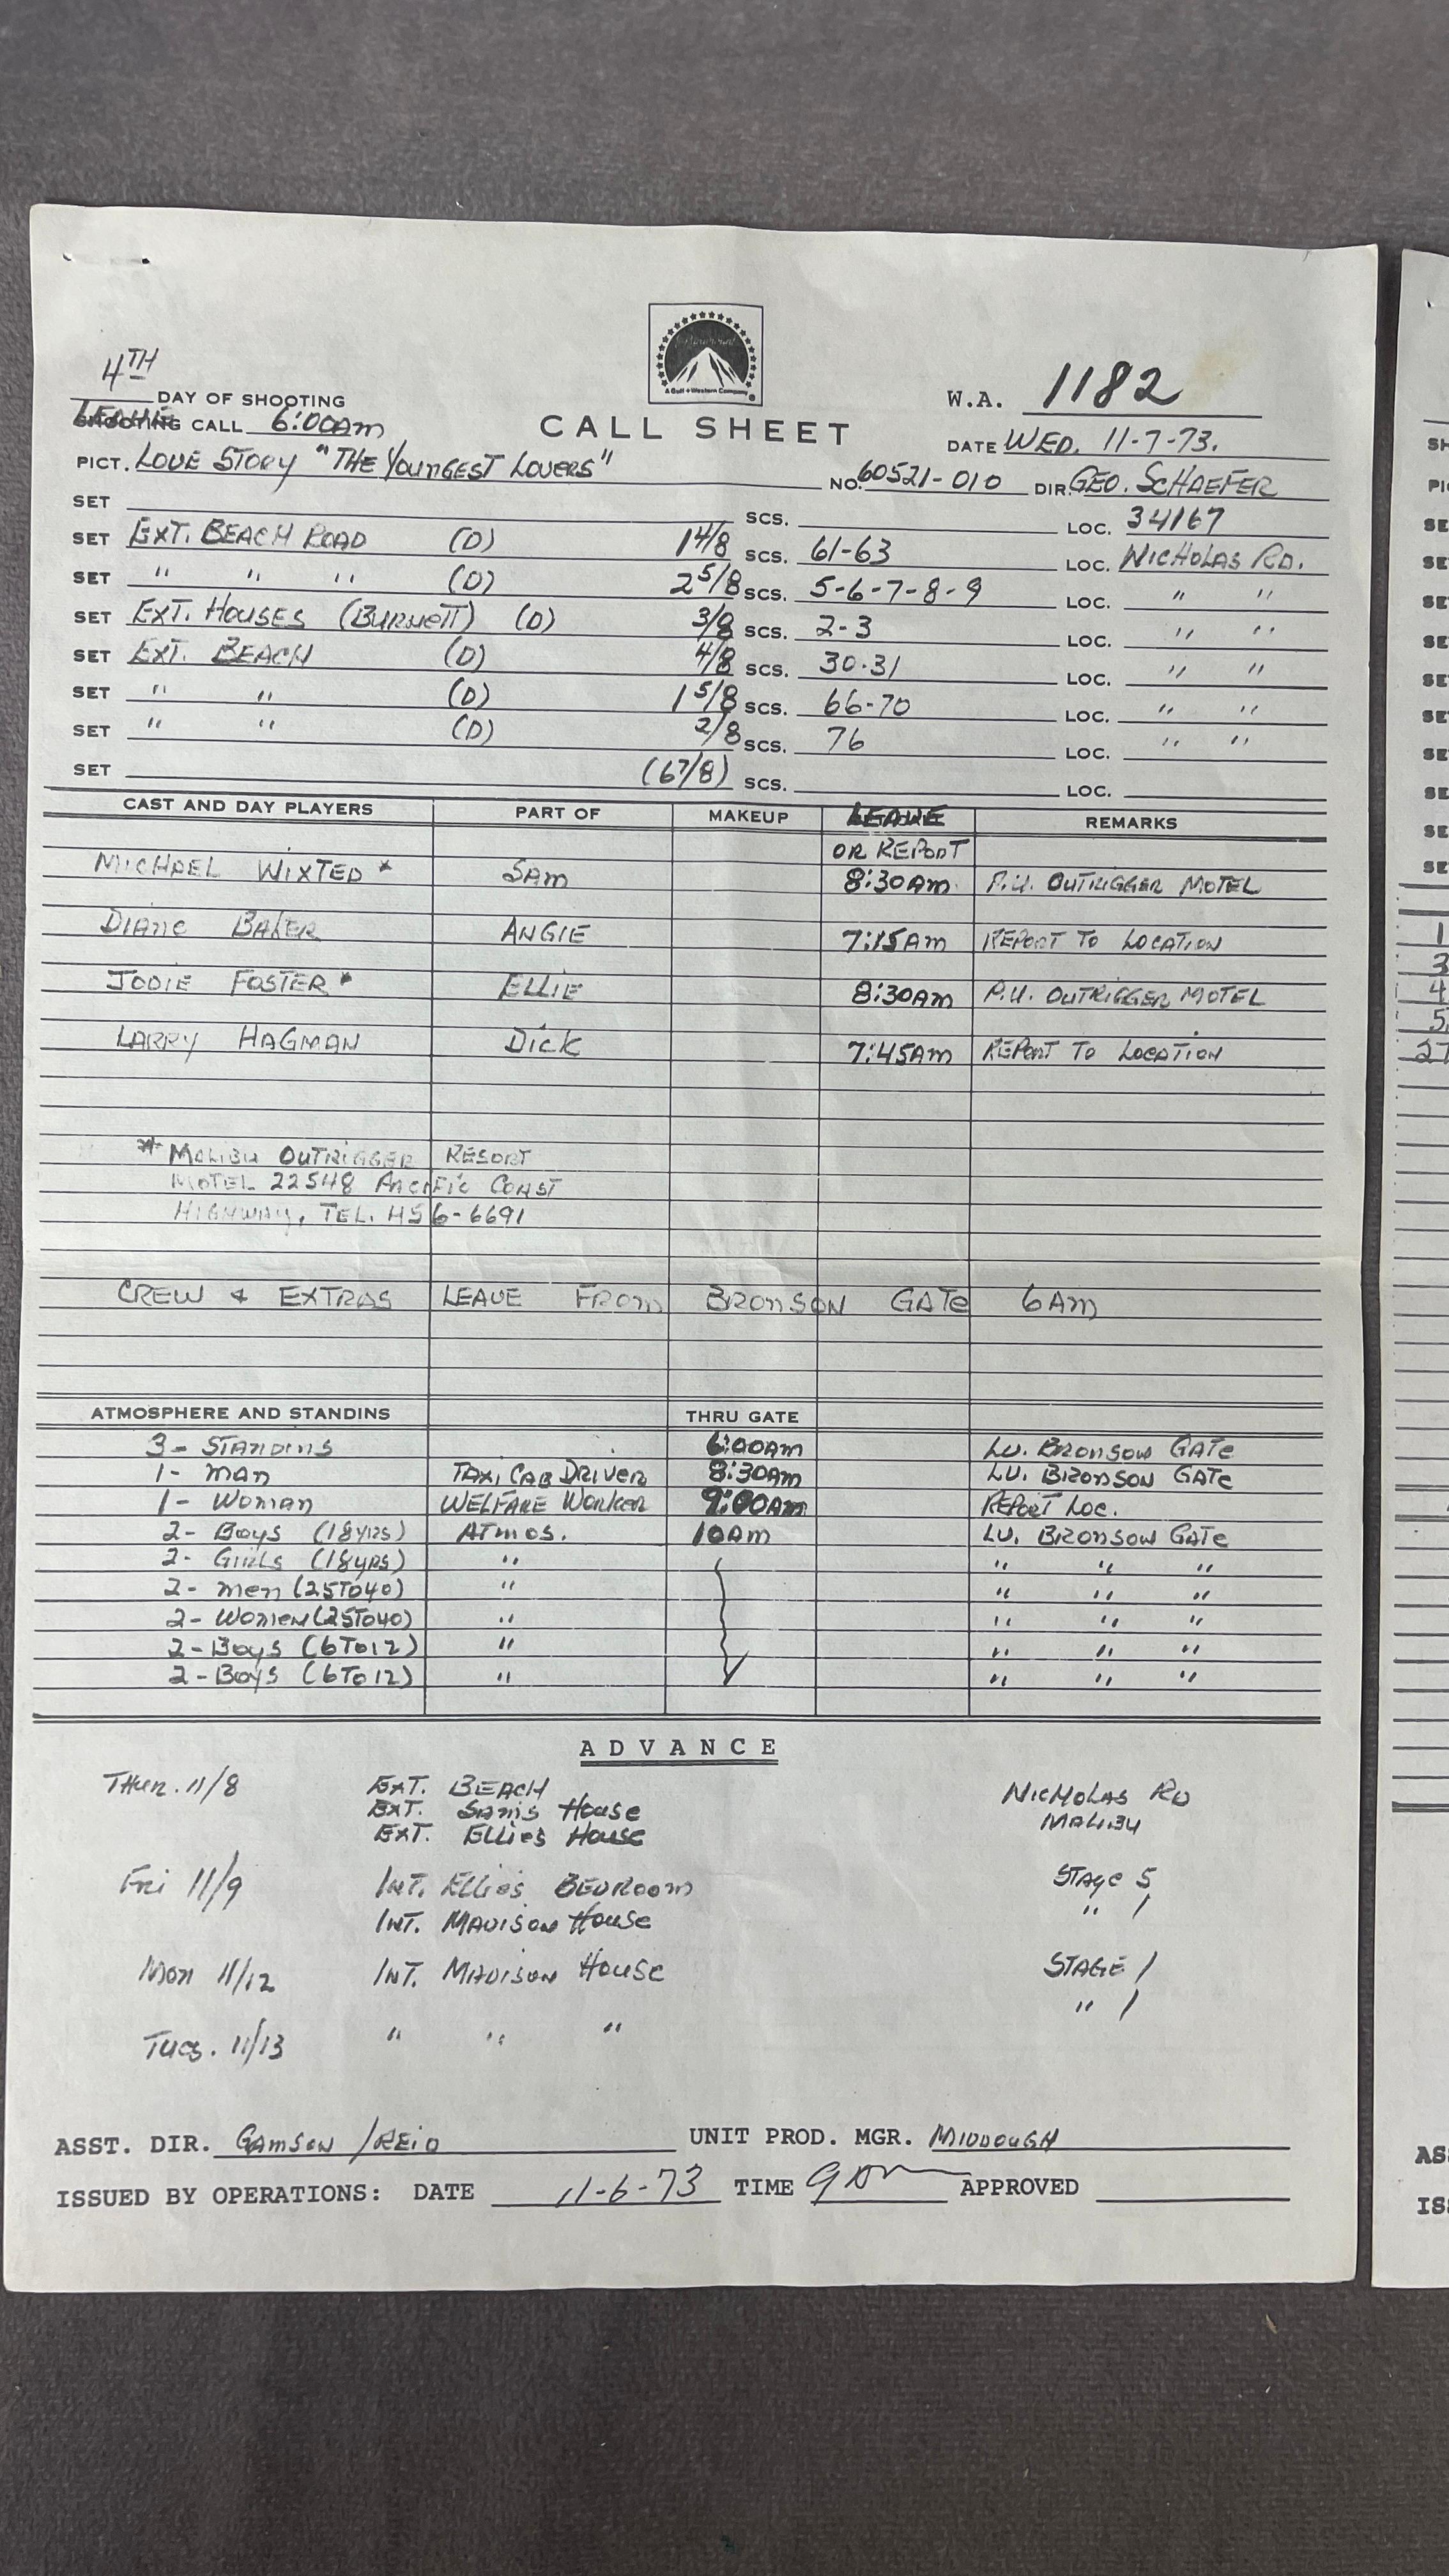 4TH
DAY OF SHOOTING
LEAVE CALL 6:00AM
Paramount
A Gulf + Western Company
CALL SHEET
W.A. 1182
DATE WED. 11-7-73.
PICT. LOVE STORY "THE YOUNGEST LOVERS" NO. 60521-010 DIR. GEO. SCHAEFER
SET SCS. LOC. 34167
SET EXT. BEACH ROAD (D) 1 4/8 SCS. 61-63 LOC. NICHOLAS RD.
SET " " " (D) 2 5/8 SCS. 5-6-7-8-9 LOC. " "
SET EXT. HOUSES (BURNETT) (D) 3/8 SCS. 2-3 LOC. " "
SET EXT. BEACH (D) 4/8 SCS. 30-31 LOC. " "
SET " " (D) 1 5/8 SCS. 66-70 LOC. " "
SET " " (D) 2/8 SCS. 76 LOC. " "
SET (6 7/8) SCS. LOC.
CAST AND DAY PLAYERS PART OF MAKEUP LEAVE REMARKS
OR REPORT
MICHAEL WIXTED * SAM 8:30AM P.U. OUTRIGGER MOTEL
DIANE BAKER ANGIE 7:15AM REPORT TO LOCATION
JODIE FOSTER * ELLIE 8:30AM P.U. OUTRIGGER MOTEL
LARRY HAGMAN DICK 7:45AM REPORT TO LOCATION
* MALIBU OUTRIGGER RESORT
MOTEL 22548 PACIFIC COAST
HIGHWAY, TEL. 456-6691
CREW & EXTRAS LEAVE FROM BRONSON GATE 6AM
ATMOSPHERE AND STANDINS THRU GATE
3- STANDINS 6:00AM LV. BRONSON GATE
1- MAN TAXI CAB DRIVER 8:30AM LV. BRONSON GATE
1- WOMAN WELFARE WORKER 9:00AM REPORT LOC.
2- BOYS (18YRS) ATMOS. 10AM LV. BRONSON GATE
2- GIRLS (18YRS) " " " "
2- MEN (25TO40) " " " "
2- WOMEN (25TO40) " " " "
2- BOYS (6TO12) " " " "
2- BOYS (6TO12) " " " "
ADVANCE
THUR. 11/8 EXT. BEACH NICHOLAS RD
EXT. SAM'S HOUSE MALIBU
EXT. ELLIES HOUSE
FRI 11/9 INT. ELLIES BEDROOM STAGE 5
INT. MADISON HOUSE " 1
MON 11/12 INT. MADISON HOUSE STAGE 1
" 1
TUES. 11/13 " " "
ASST. DIR. GAMSON / REID UNIT PROD. MGR. MIDDOUGH
ISSUED BY OPERATIONS: DATE 11-6-73 TIME 9 AM APPROVED